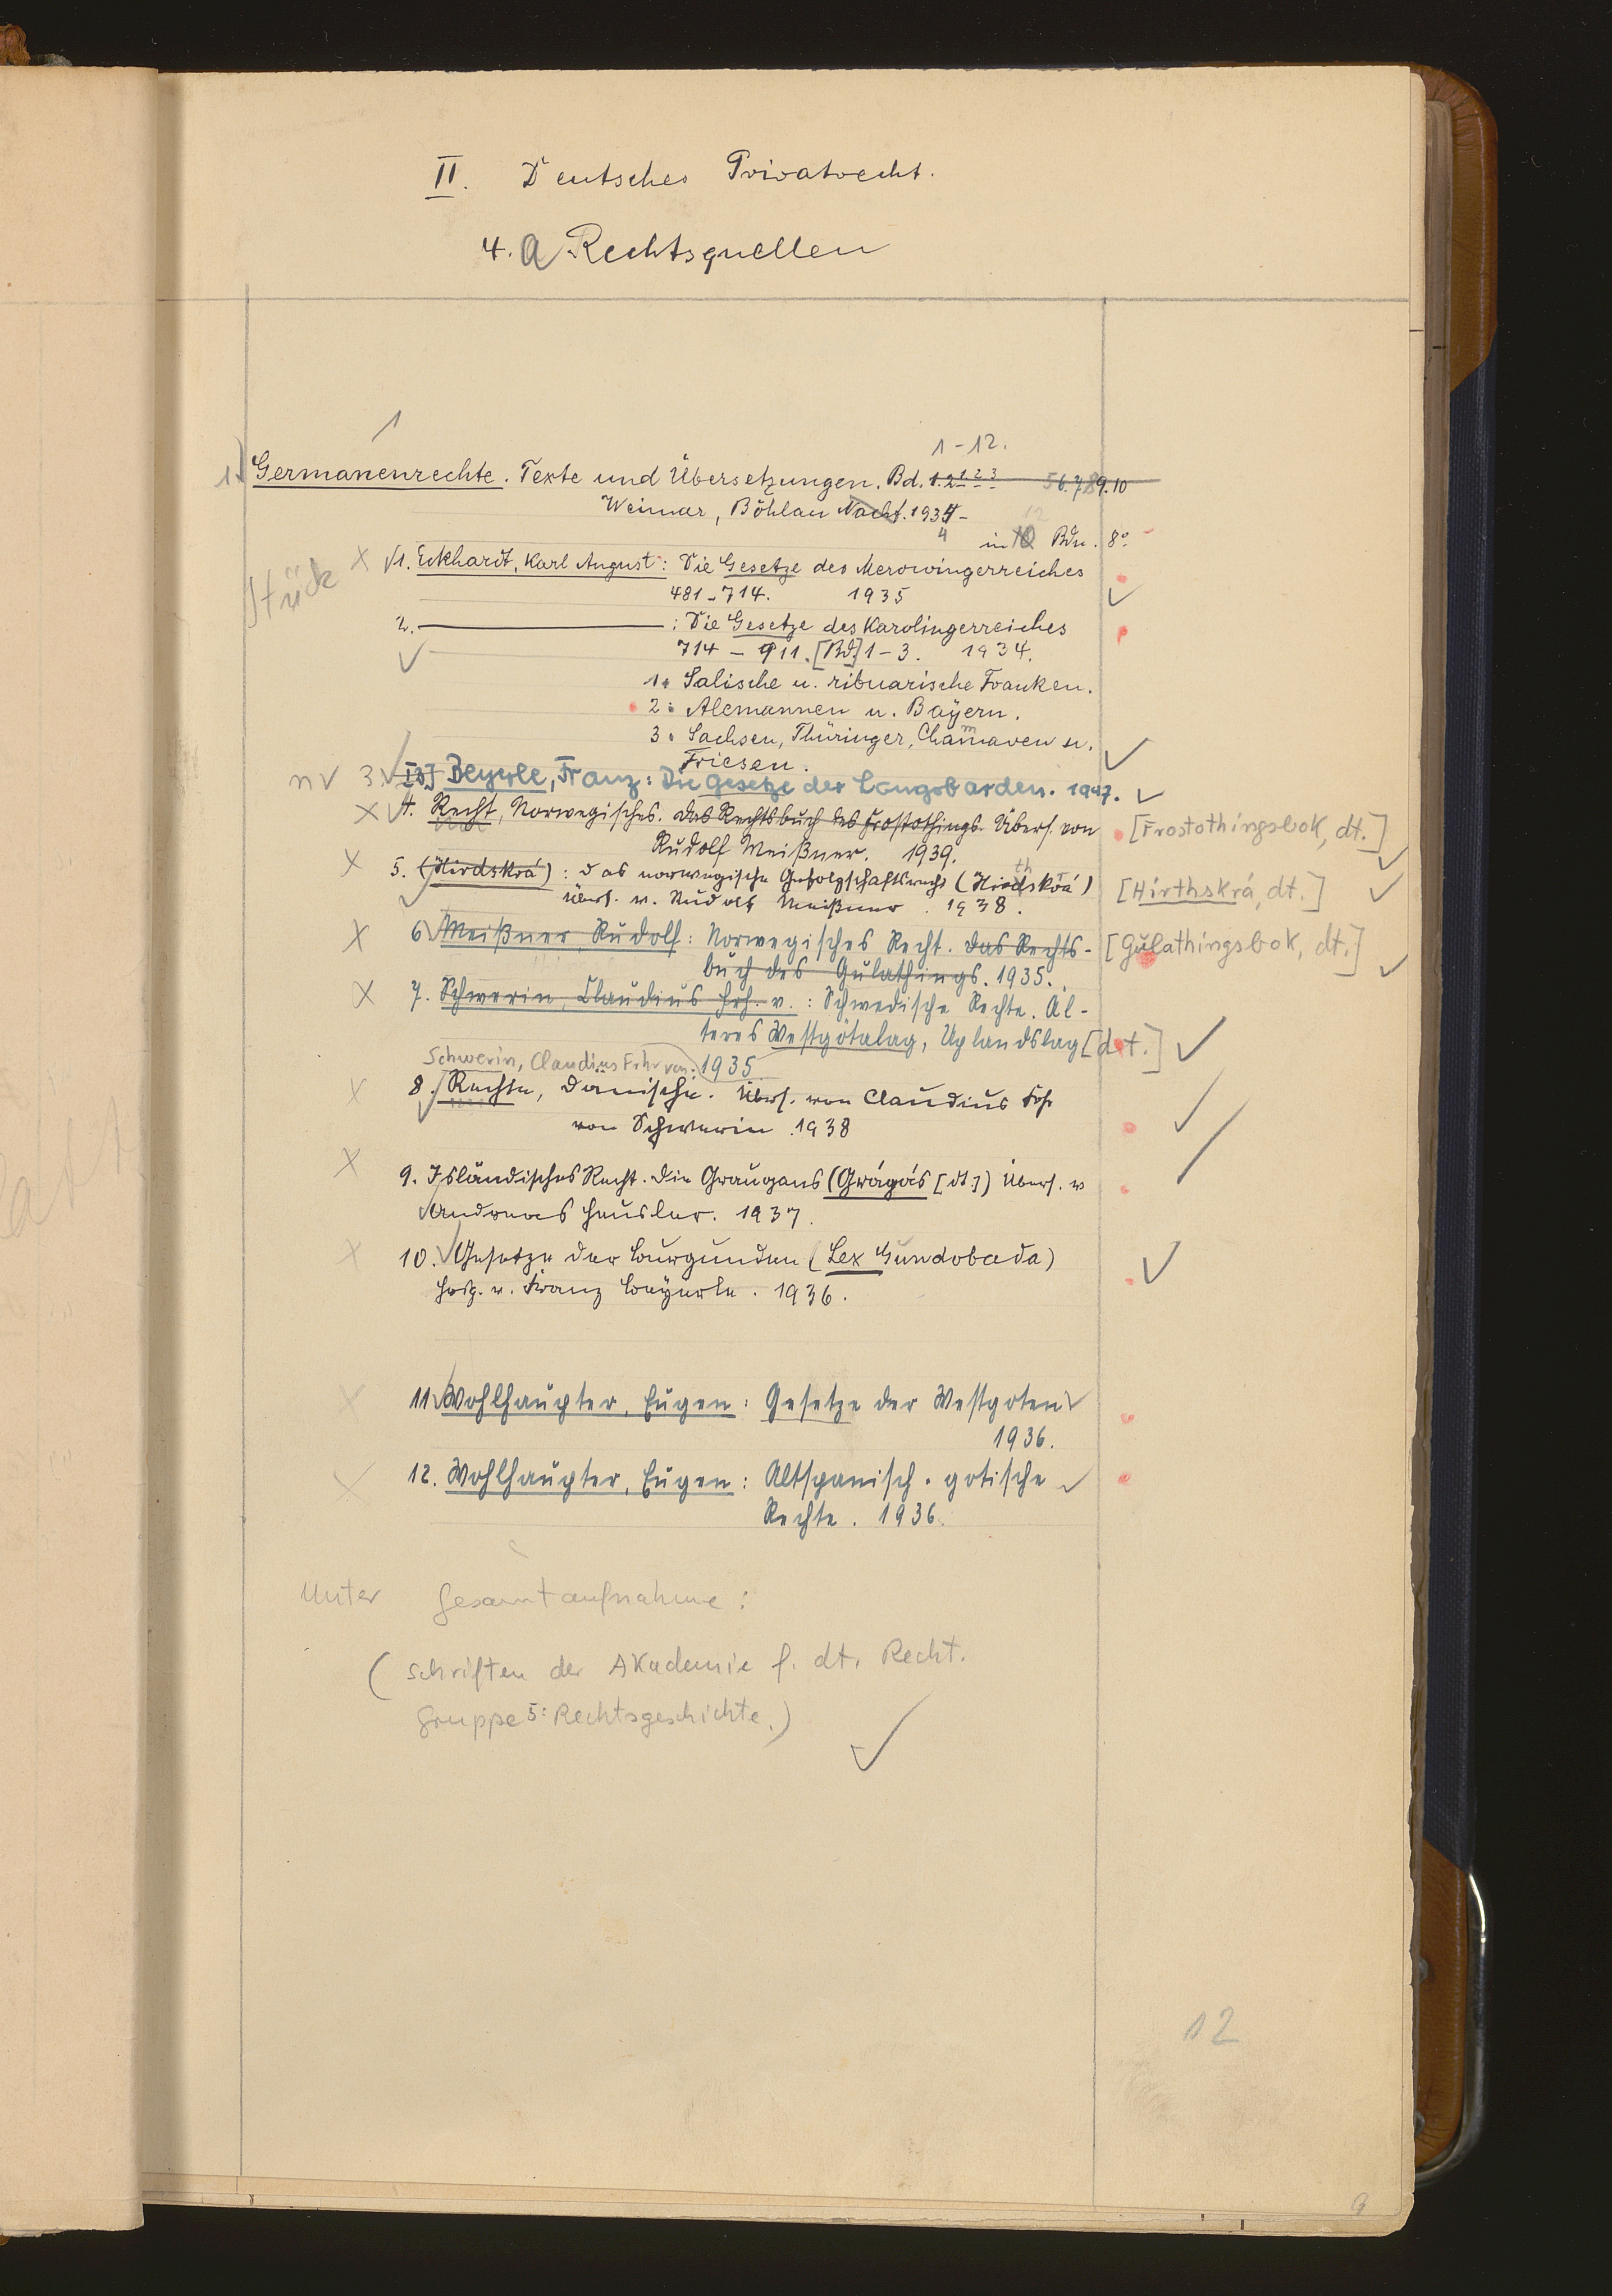 II. Deutsches Privatrecht.
4. a Rechtsquellen
1
1-12.
1. Germanenrechte. Texte und Übersetzungen. Bd. 1. 2 1. 2. 3 5 6. 7. 8 9. 10
Weimar, Böhlau Nachf. 1934-
4
12
in 10 Bdn. 8°
Stück
1. Eckhardt, Karl August: Die Gesetze des Merowingerreiches
481-714. 1935
2. ———: Die Gesetze des Karolingerreiches
714-911. [Bd] 1-3. 1934.
1. Salische u. ribuarische Franken.
2. Alemannen u. Bayern.
3. Sachsen, Thüringer, Chamaven u.
Friesen.
n 3. Beyerle, Franz: Die Gesetze der Langobarden. 1947.
4. Recht, Norwegisches. Das Rechtsbuch des Frostothings. Übers. von [Frostothingsbok, dt.]
Rudolf Meißner. 1939.
5. (Hirdskrá): Das norwegische Gefolgschaftsrecht (Hirdskrá) [Hirthskrá, dt.]
th
übers. v. Rudolf Meißner. 1938.
6. Meißner, Rudolf: Norwegisches Recht. Das Rechts- [Gulathingsbok, dt.]
buch des Gulathings. 1935.
7. Schwerin, Claudius Frh. v.: Schwedische Rechte. Äl-
teres Westgötalag, Uplandslag [dt.]
Schwerin, Claudius Frhr von: 1935
8. Rechte, Dänische. Übers. von Claudius Frh
von Schwerin. 1938
9. Isländisches Recht. Die Graugans (Grágás [dt.]) Übers. v
Andreas Heusler. 1937.
10. Gesetze der Burgunden (Lex Gundobada)
Hrsg. v. Franz Beyerle. 1936.
11. Wohlhaupter, Eugen: Gesetze der Westgoten
1936.
12. Wohlhaupter, Eugen: Altspanisch-gotische
Rechte. 1936.
Unter Gesamtaufnahme:
(Schriften der Akademie f. dt. Recht.
Gruppe 5: Rechtsgeschichte.)
12
9